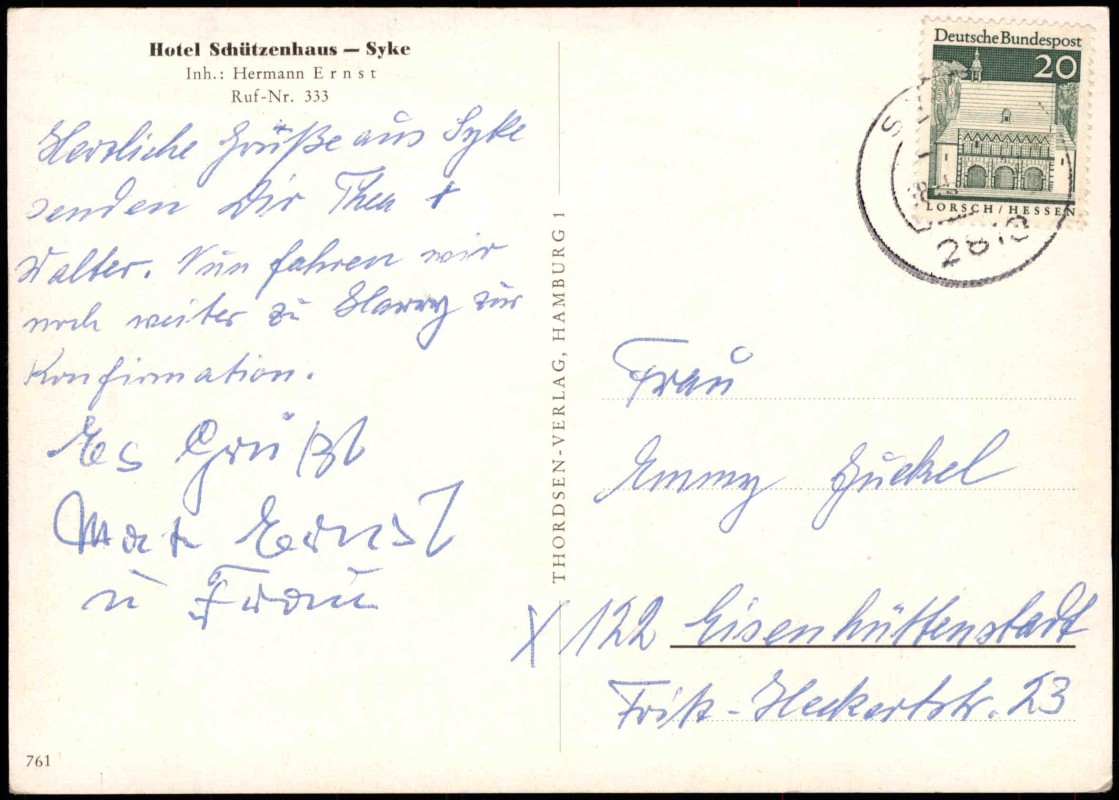 Hotel Schützenhaus – Syke
Inh.: Hermann Ernst
Ruf-Nr. 333
Herzliche Grüße aus Syke
senden Dir Thea +
Walter. Nun fahren wir
noch weiter zu Harry zur
Konfirmation.
Es Grüßt
Ernst
u Frau
761
THORDSEN-VERLAG, HAMBURG 1
Deutsche Bundespost
20
LORSCH/HESSEN
Frau
Emmy
X 122 Eisenhüttenstadt
Fritz-Heckertstr. 23